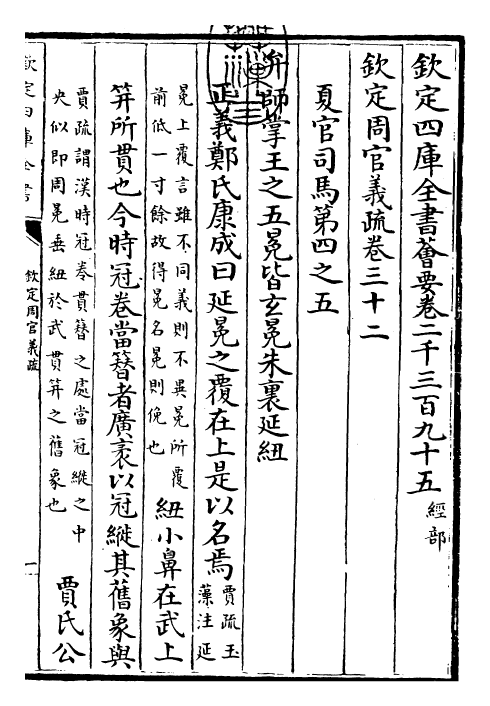 欽定四庫全書薈要卷二千三百九十五 經部
欽定周官義疏卷三十二
夏官司馬第四之五
弁師掌王之五冕皆玄冕朱裏延紐
正義鄭氏康成曰延冕之覆在上是以名焉 賈疏玉
藻注延
冕上覆言雖不同義則不異冕所覆
前低一寸餘故得冕名冕則俛也
紐小鼻在武上
笄所貫也今時冠卷當簪者廣袤以冠縰其舊象與
賈疏謂漢時冠卷貫簪之處當冠縰之中
央似即周冕垂紐於武貫笄之舊象也
賈氏公
欽定四庫全書
欽定周官義疏
一